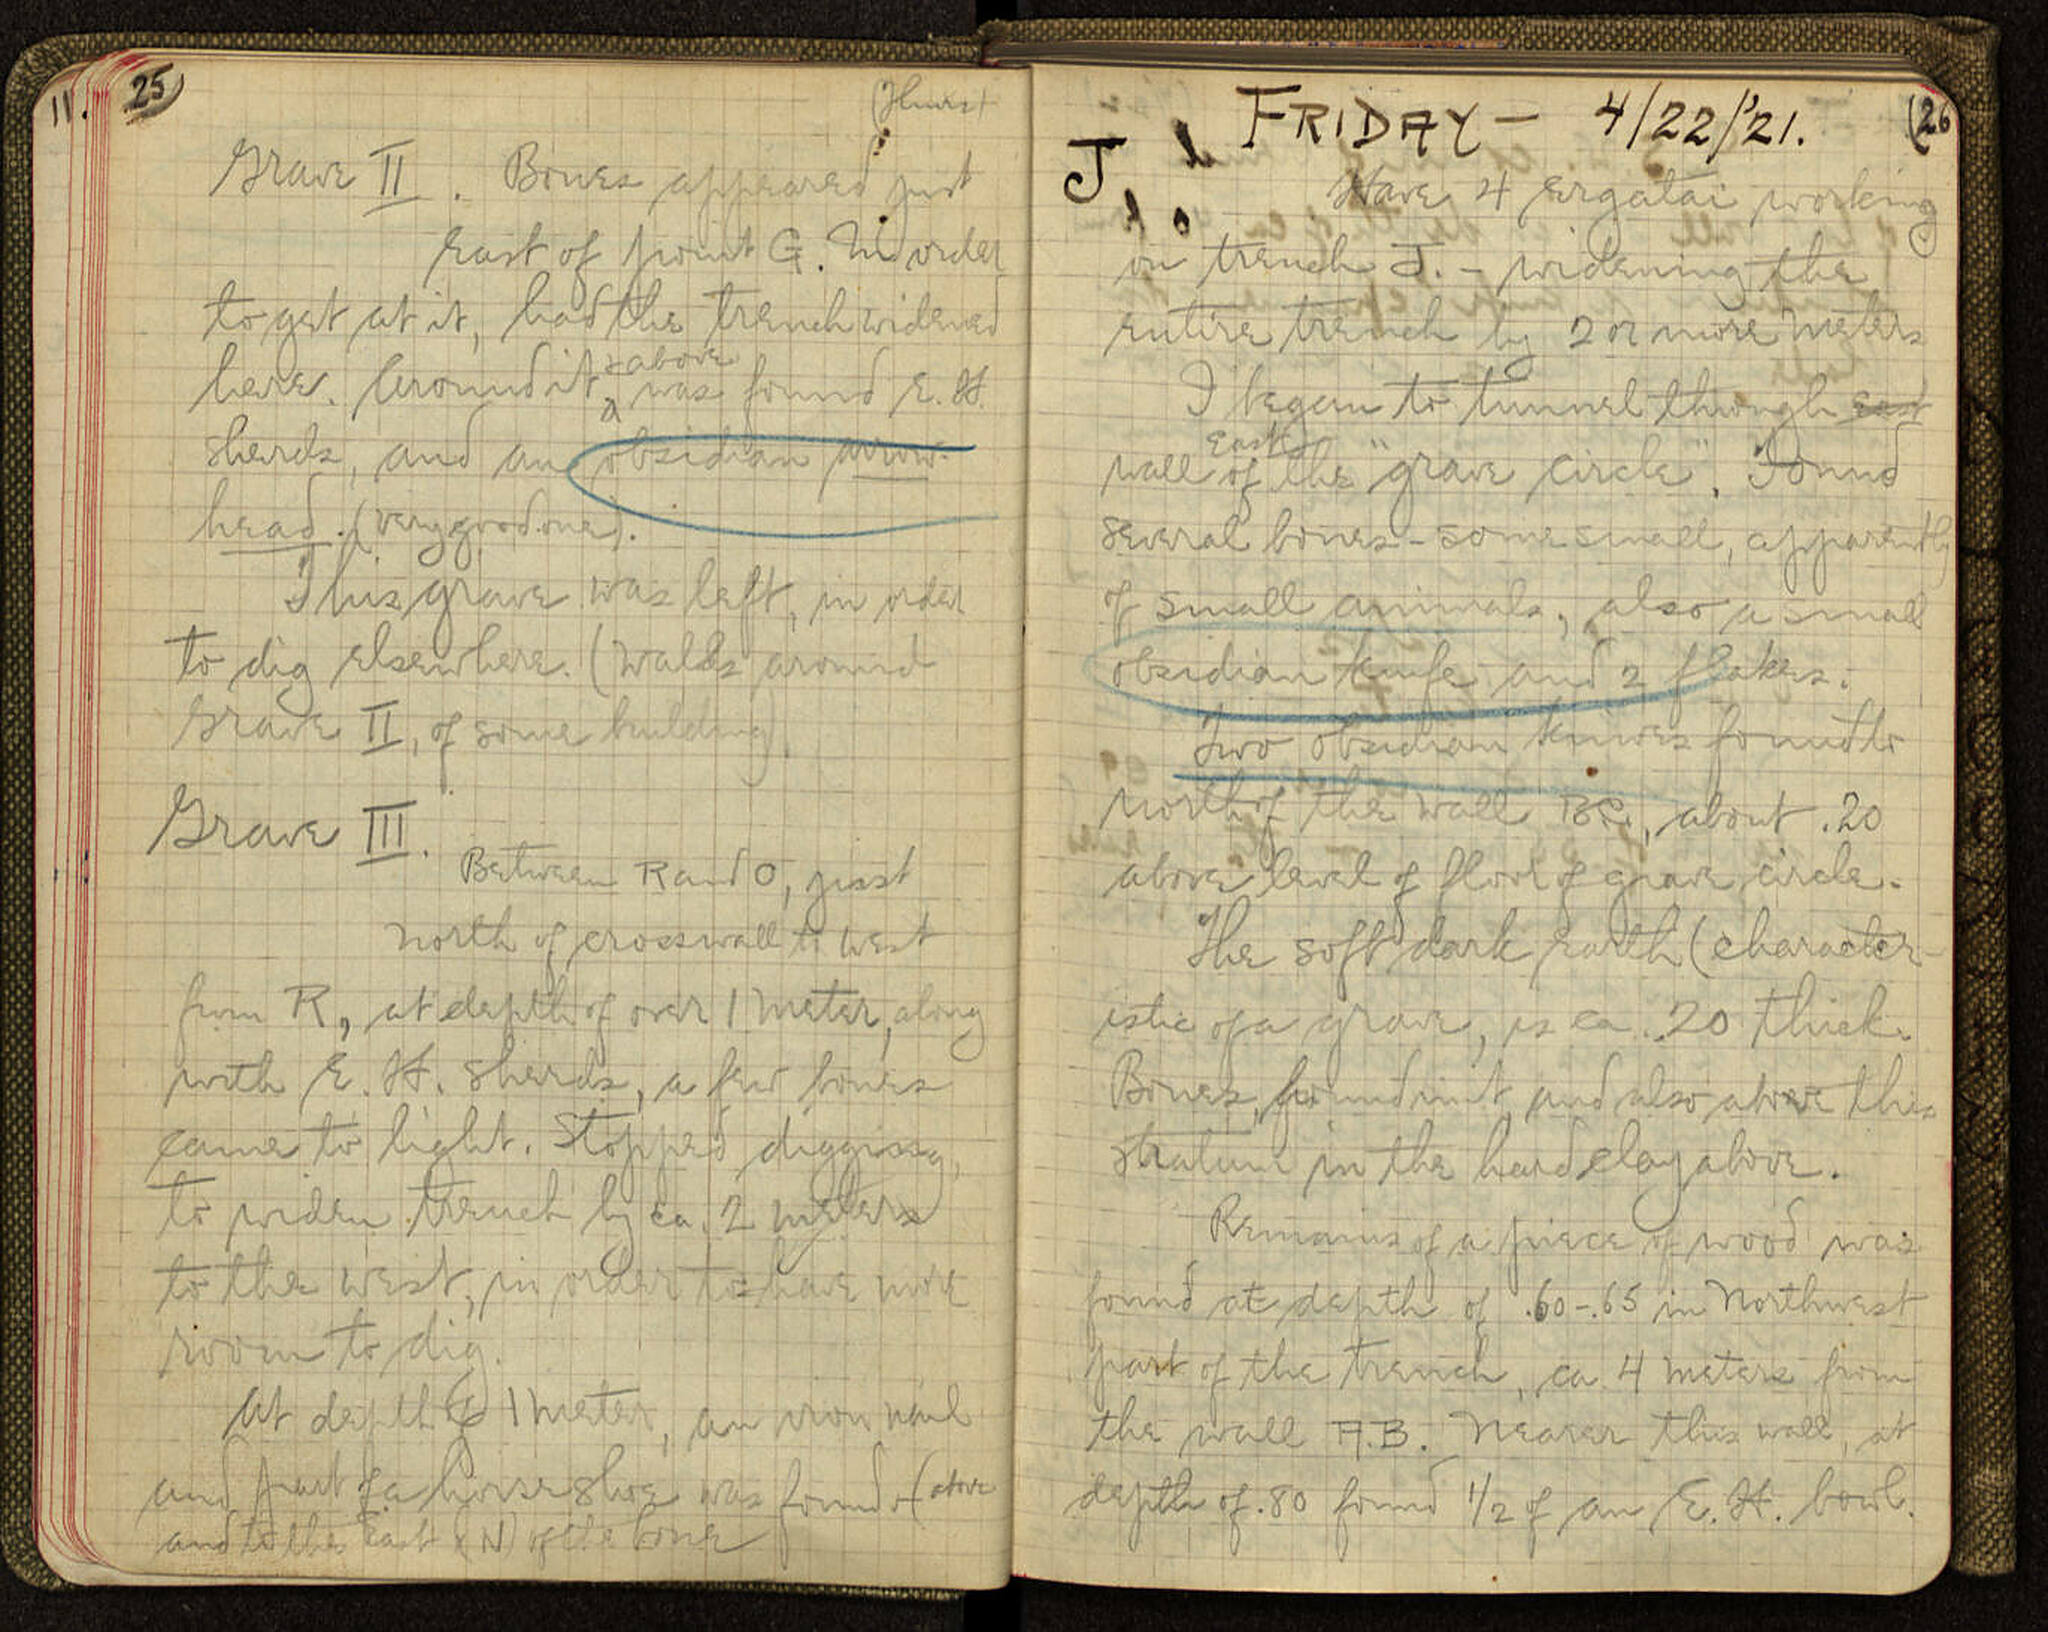 11. 25
(Thurs)
Grave II. Bones appeared just
east of point G. In order
to get at it, had the trench widened
here. Around it & above was found E. H.
sherds, and an obsidian arrow-
head. (very good one).
This grave was left, in order
to dig elsewhere. (Walls around
Grave II, of some building).
Grave III.
Between R and O, just
north of crosswall to west
from R, at depth of over 1 meter, along
with E. H. sherds, a few bones
came to light. Stopped digging,
to widen trench by ca. 2 meters
to the west, in order to have more
room to dig.
At depth of 1 meter, an iron nail
and part of a horse shoe was found (above
and to the East (N) of the bone
FRIDAY — 4/22/'21. (26
J.
Have 4 ergatai working
on trench J. - widening the
entire trench by 2 or more meters
I began to tunnel through east
wall east of the "grave circle". Found
several bones - some small, apparently
of small animals, also a small
obsidian knife and 2 flakes.
Two obsidian knives found to
north of the wall BC, about .20
above level of floor of grave circle.
The soft dark earth (character-
istic of a grave, is ca. .20 thick.
Bones found in it, and also above this
stratum in the hard clay above.
Remains of a piece of wood was
found at depth of .60-.65 in Northwest
part of the trench, ca 4 meters from
the wall A.B. Nearer this wall, at
depth of .80 found 1/2 of an E. H. bowl.